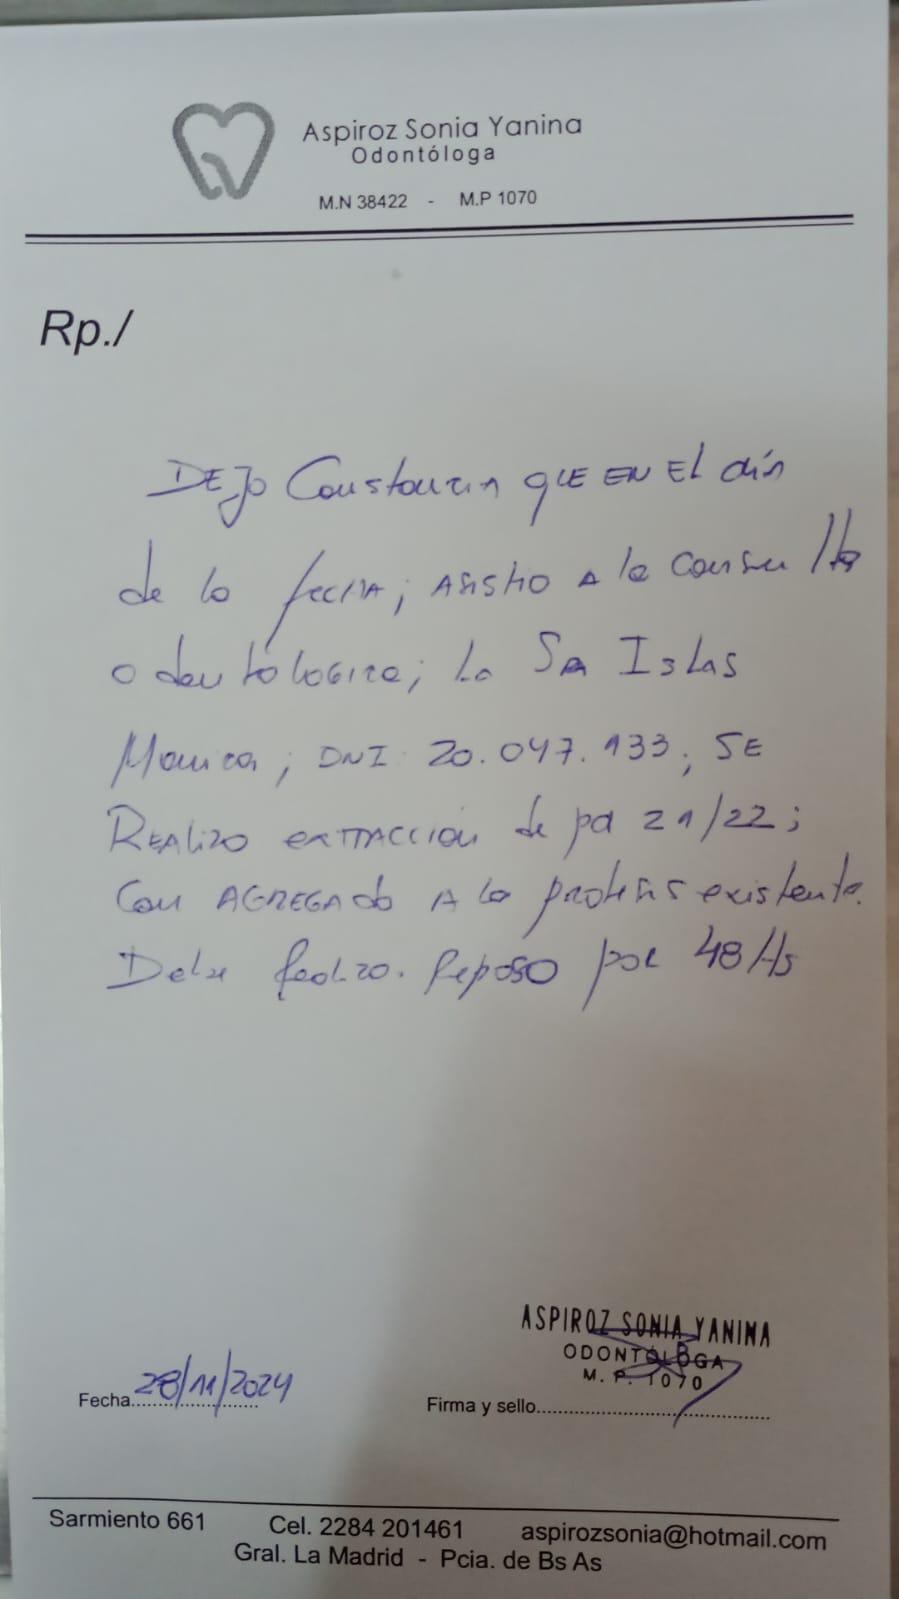 Aspiroz Sonia Yanina
Odontóloga
M.N 38422 - M.P 1070
Rp./
DEJO Constancia QUE EN El día
de la fecha; Asistio A la consulta
odontológica; La Sra Islas
Monica; DNI: 20.047.933; SE
REAlizo extracción de pd 21/22;
Con AGREGADO A la protesis existente.
Debe realizar Reposo por 48 Hs
ASPIROZ SONIA YANINA
ODONTÓLOGA
M. P. 1070
Fecha 28/11/2024
Firma y sello
Sarmiento 661 Cel. 2284 201461 aspirozsonia@hotmail.com
Gral. La Madrid - Pcia. de Bs As